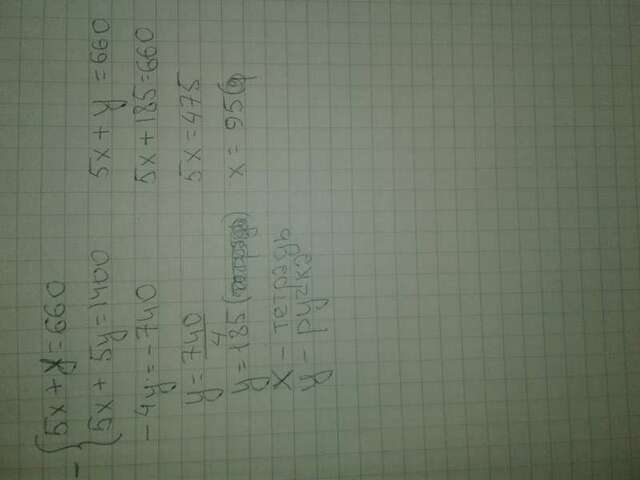 - {5x + y = 660
{5x + 5y = 1400
-4y = -740
y = 740/4
y = 185 (
x - тетрадь
y - ручка
5x + y = 660
5x + 185 = 660
5x = 475
x = 95 (